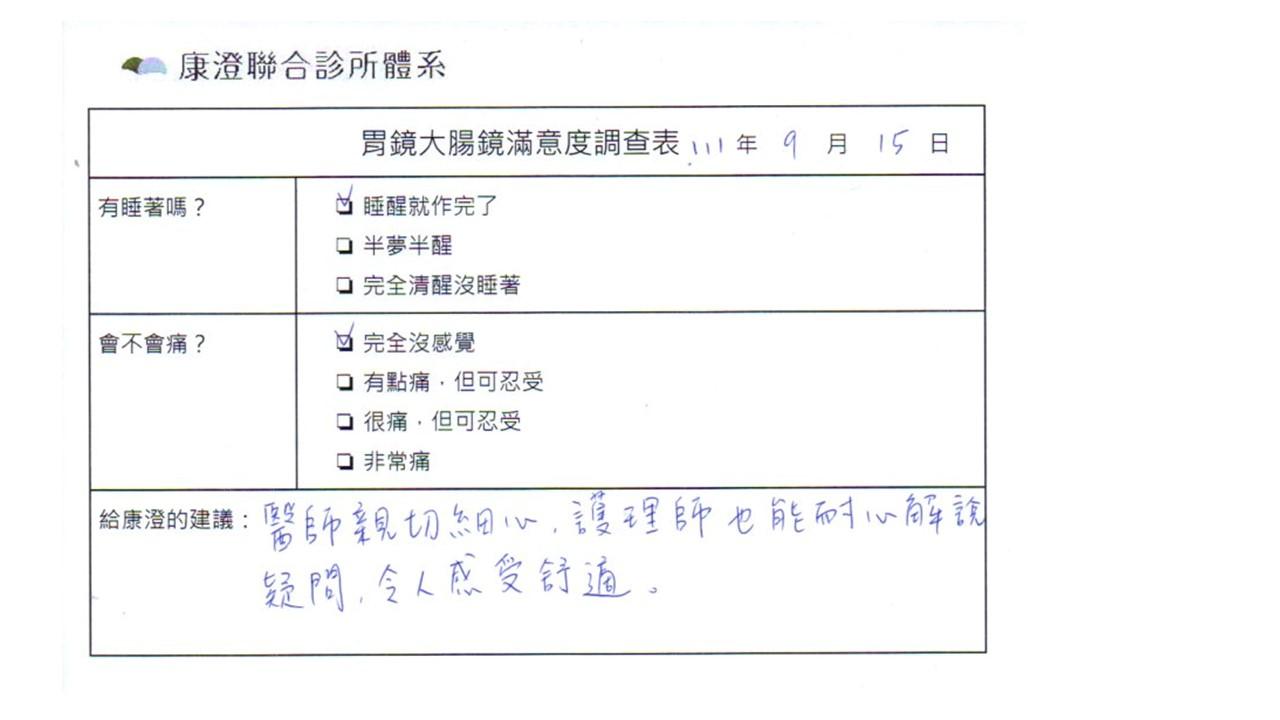 康澄聯合診所體系
胃鏡大腸鏡滿意度調查表 111 年 9 月 15 日
有睡著嗎？
☑ 睡醒就作完了
☐ 半夢半醒
☐ 完全清醒沒睡著
會不會痛？
☑ 完全沒感覺
☐ 有點痛，但可忍受
☐ 很痛，但可忍受
☐ 非常痛
給康澄的建議：醫師親切細心，護理師也能耐心解說
疑問，令人感受舒適。